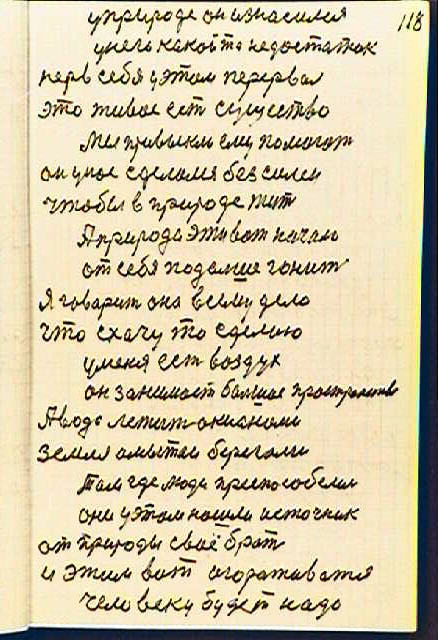 118
уприроде он износился
унего какой то недостаток
нерв себя уэтом перервал
это живое ест существо
Мы привыкли ему помогат
он уное сделался без силен
чтобы в природе жит
Априрода эти вот начало
от себя подалше гонит
Я говарит она всему дело
что схачу то сделою
уменя ест воздух
он занимает балшое пространство
Авода лежит окианами
земля омытоя берегами
Там где люди приспособелис
они уэтом нашли источник
от природы своё брат
и этим вот огораживатся
человеку будет надо